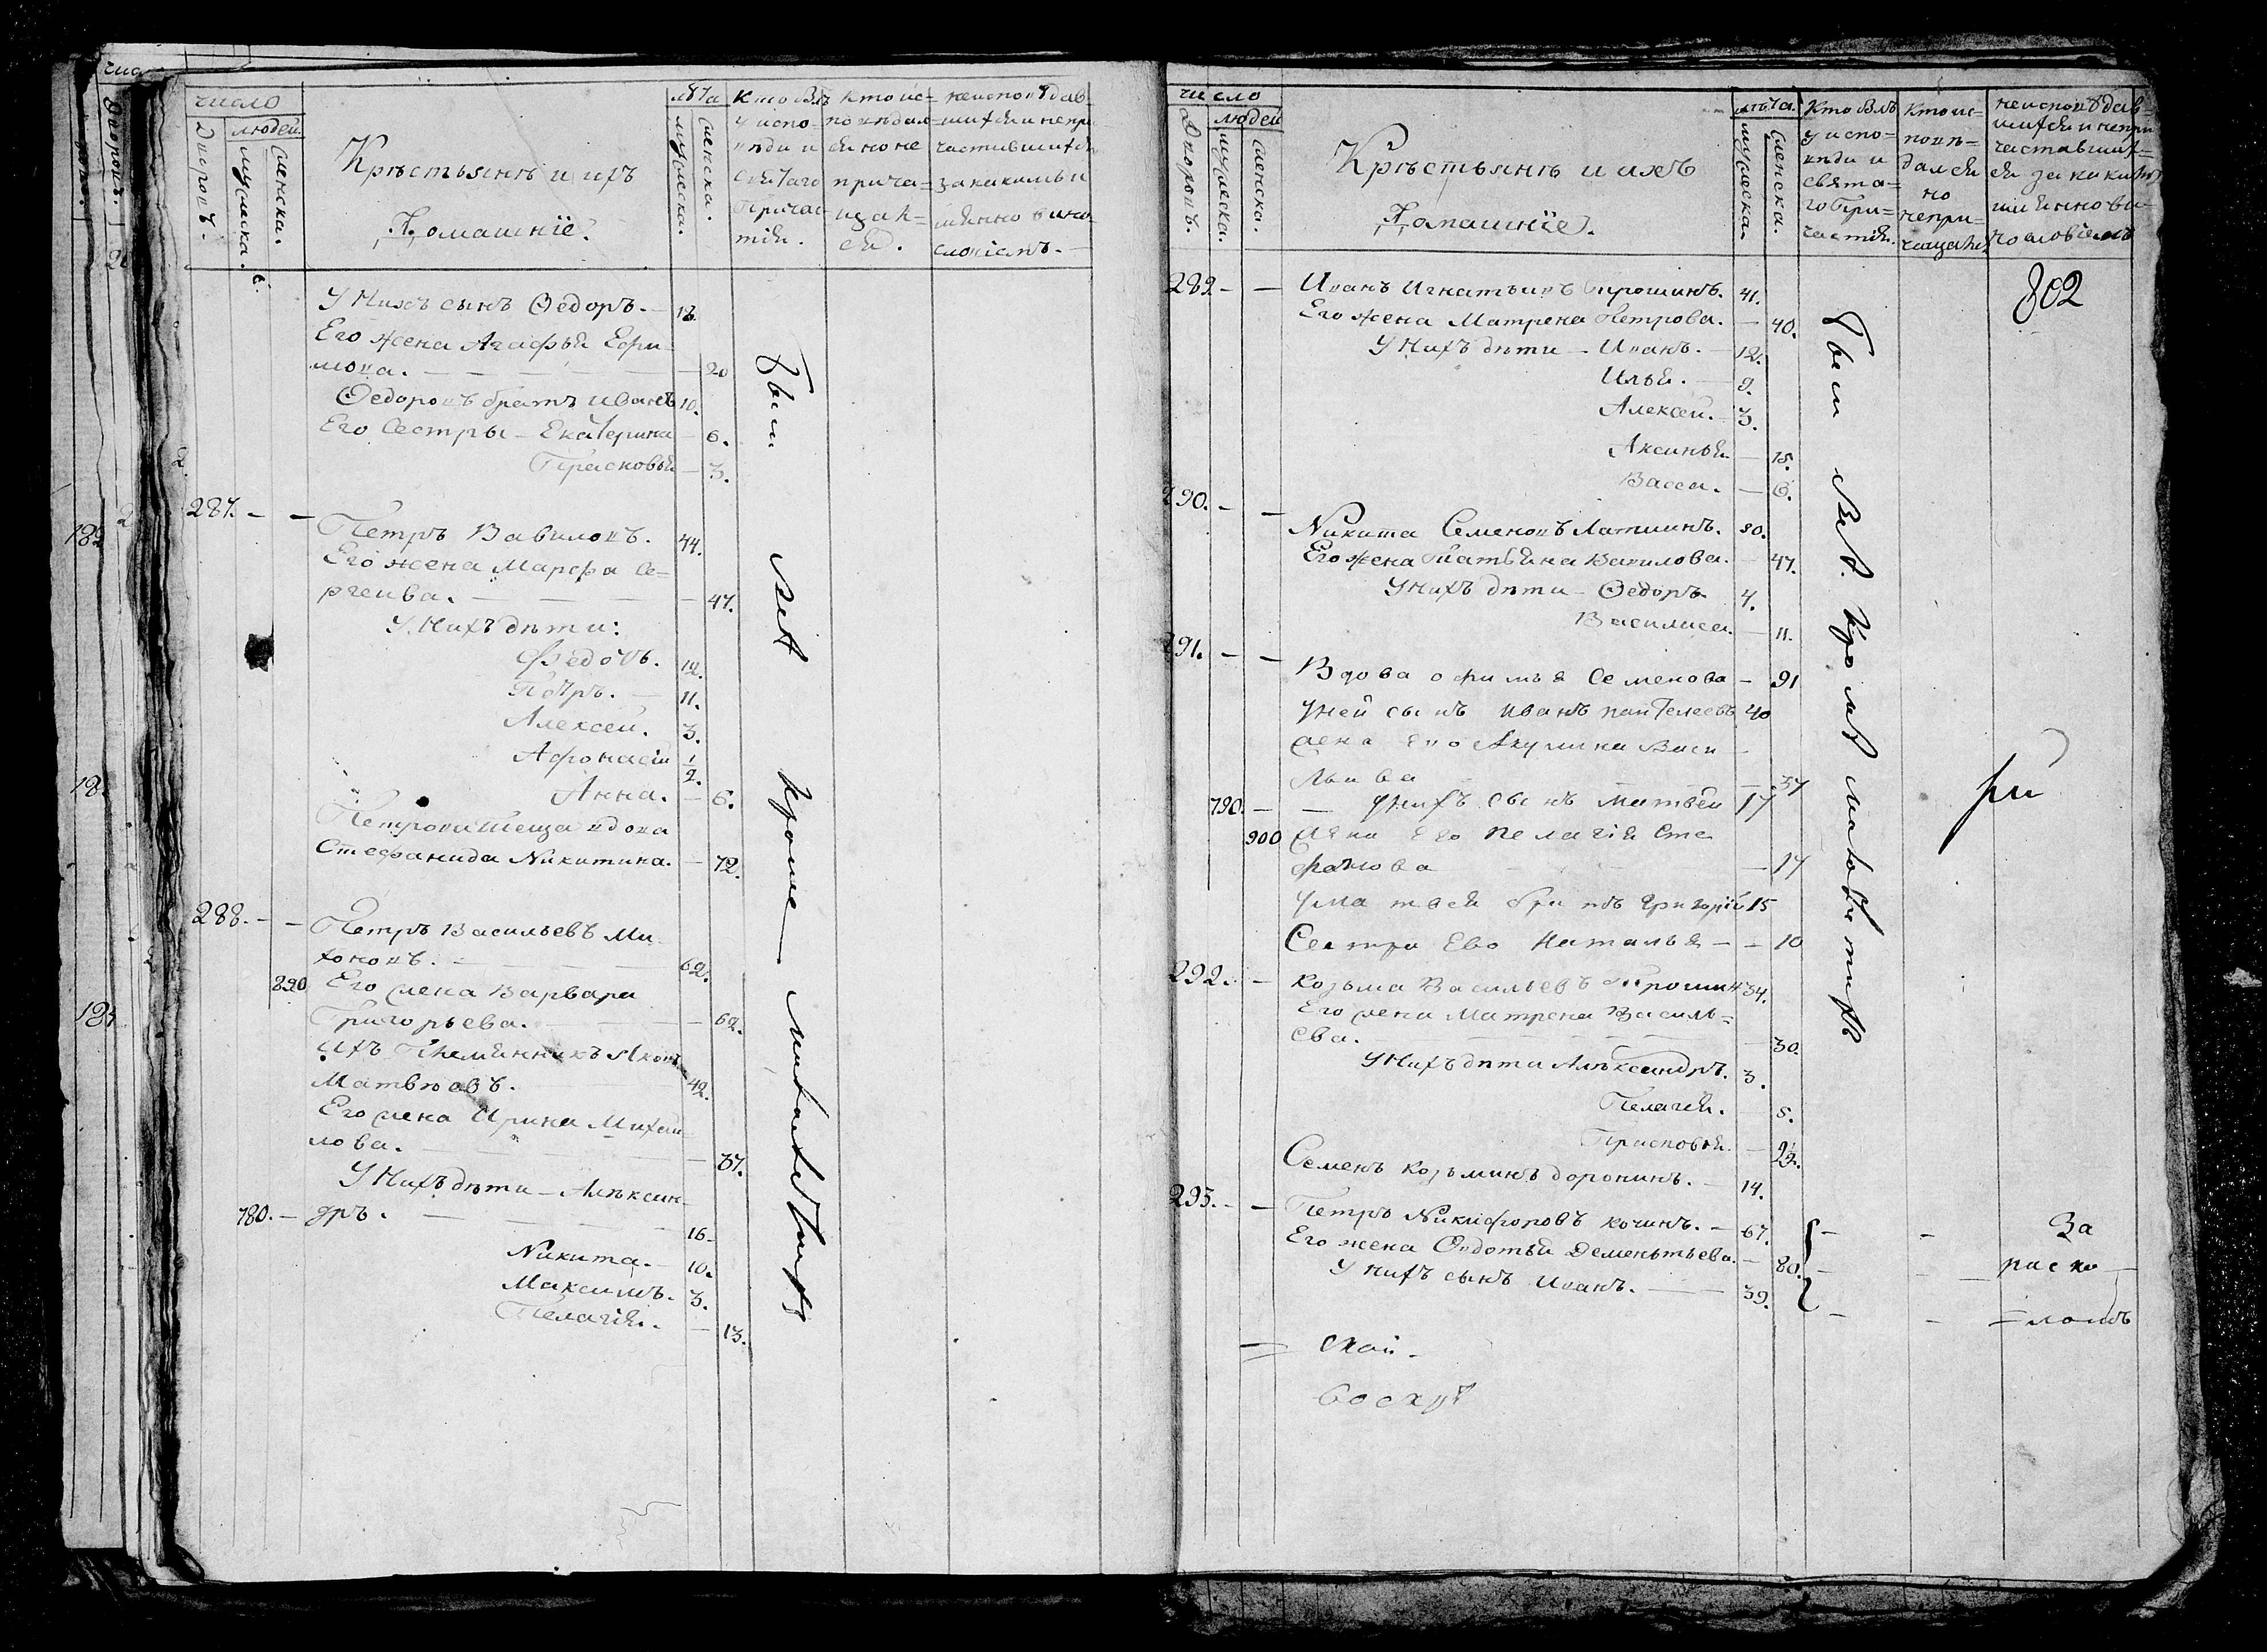 число
Дворовъ.
людей
мужеска.
женска.
Крѣстьянѣ и ихъ
Домашніе.
лѣта
мужеска.
женска.
Кто былъ
у испо-
вѣди и
святаго
Причас-
тія.
кто ис-
повѣдал-
ся но не
прича-
щал-
ся.
неисповѣдав-
шихся и непри-
частившихся
за какимъ и
имянно вино-
словіемъ.
У Нихъ сынъ Ѳедоръ. 18.
Его жена Агафья Ефи-
мова. — 20
Ѳедоровъ братъ Иванъ 10.
Его Сестры - Екатерина — 6.
Прасковья — 3.
287. - -
Петръ Вавиловъ. 44.
Его жена Марфа Се-
ргеива. — 47.
У Нихъ дѣти:
Ѳедотъ. 12.
Петръ. 11.
Алексей. 3.
Афонасіи 1/2.
Анна. — 6.
Петрова теща вдова
Стефанида Никитина. — 72.
288. - -
Петръ Васильевъ Ми-
хоновъ. 62.
290 Его жена Варвара
Григорьева. — 62.
Ихъ Племянникъ Яковъ
Матвѣовъ. 42.
Его жена Ирина Михаи-
лова. — 37.
У Нихъ дѣти - Алѣксан-
780. - дръ. 16.
Никита. 10.
Максимъ. 3.
Пелагія. — 13.
были всѣ кромѣ малолѣтнихъ
число
Дворовъ.
людей
мужеска.
женска.
Крѣстьянѣ и ихъ
Домашніе.
лѣта.
мужеска.
женска.
Кто былъ
у испо-
вѣди и
свята-
го При-
частія.
кто ис-
повѣ-
дался
но
непри-
чащался
неисповѣдав-
шихся и непри-
частивших-
ся за какимъ
имянно ви-
нословіемъ
802
289 - - Иванъ Игнатьивъ Тирошинъ. 41.
Его жена Матрена Петрова. — 40.
У Нихъ дѣти - Иванъ. 12.
Илья. 9.
Алексеи. 3.
Аксинья. — 15.
Васса. — 6.
290. - -
Никита Семеновъ Латшинъ. 80.
Его жена Татьяна Вавилова. — 47.
У Нихъ дѣти - Ѳедоръ. 4.
Василиса. — 11.
291. - -
Вдова офимья Семенова — 91
Уней сынъ иванъ пантелеевъ 40
жена его Акулина Васи
льива — 37
790. - - унихъ сынъ матвѣи 17
900 жена его пелагія Сте
фанова — 17
Уматвея братъ григорій 15
Сестра Ево Наталья — 10
292. - - Козьма Васильевъ Тирошин 34.
Его жена Матрена Василь-
ева. — 30.
У Нихъ дѣти Алѣксандръ. 3.
Пелагія. — 5.
Прасковья. — 2 1/2.
Семенъ козьминъ доронинъ. 14.
293. - - Петръ Никифоровъ кочинъ. 67.
Его жена Овдотья Деменьтьева. — 80.
У Нихъ сынъ Иванъ. 39.
За
раско
=ломъ
были всѣ кромѣ малолѣтнихъ
ри
= ской -